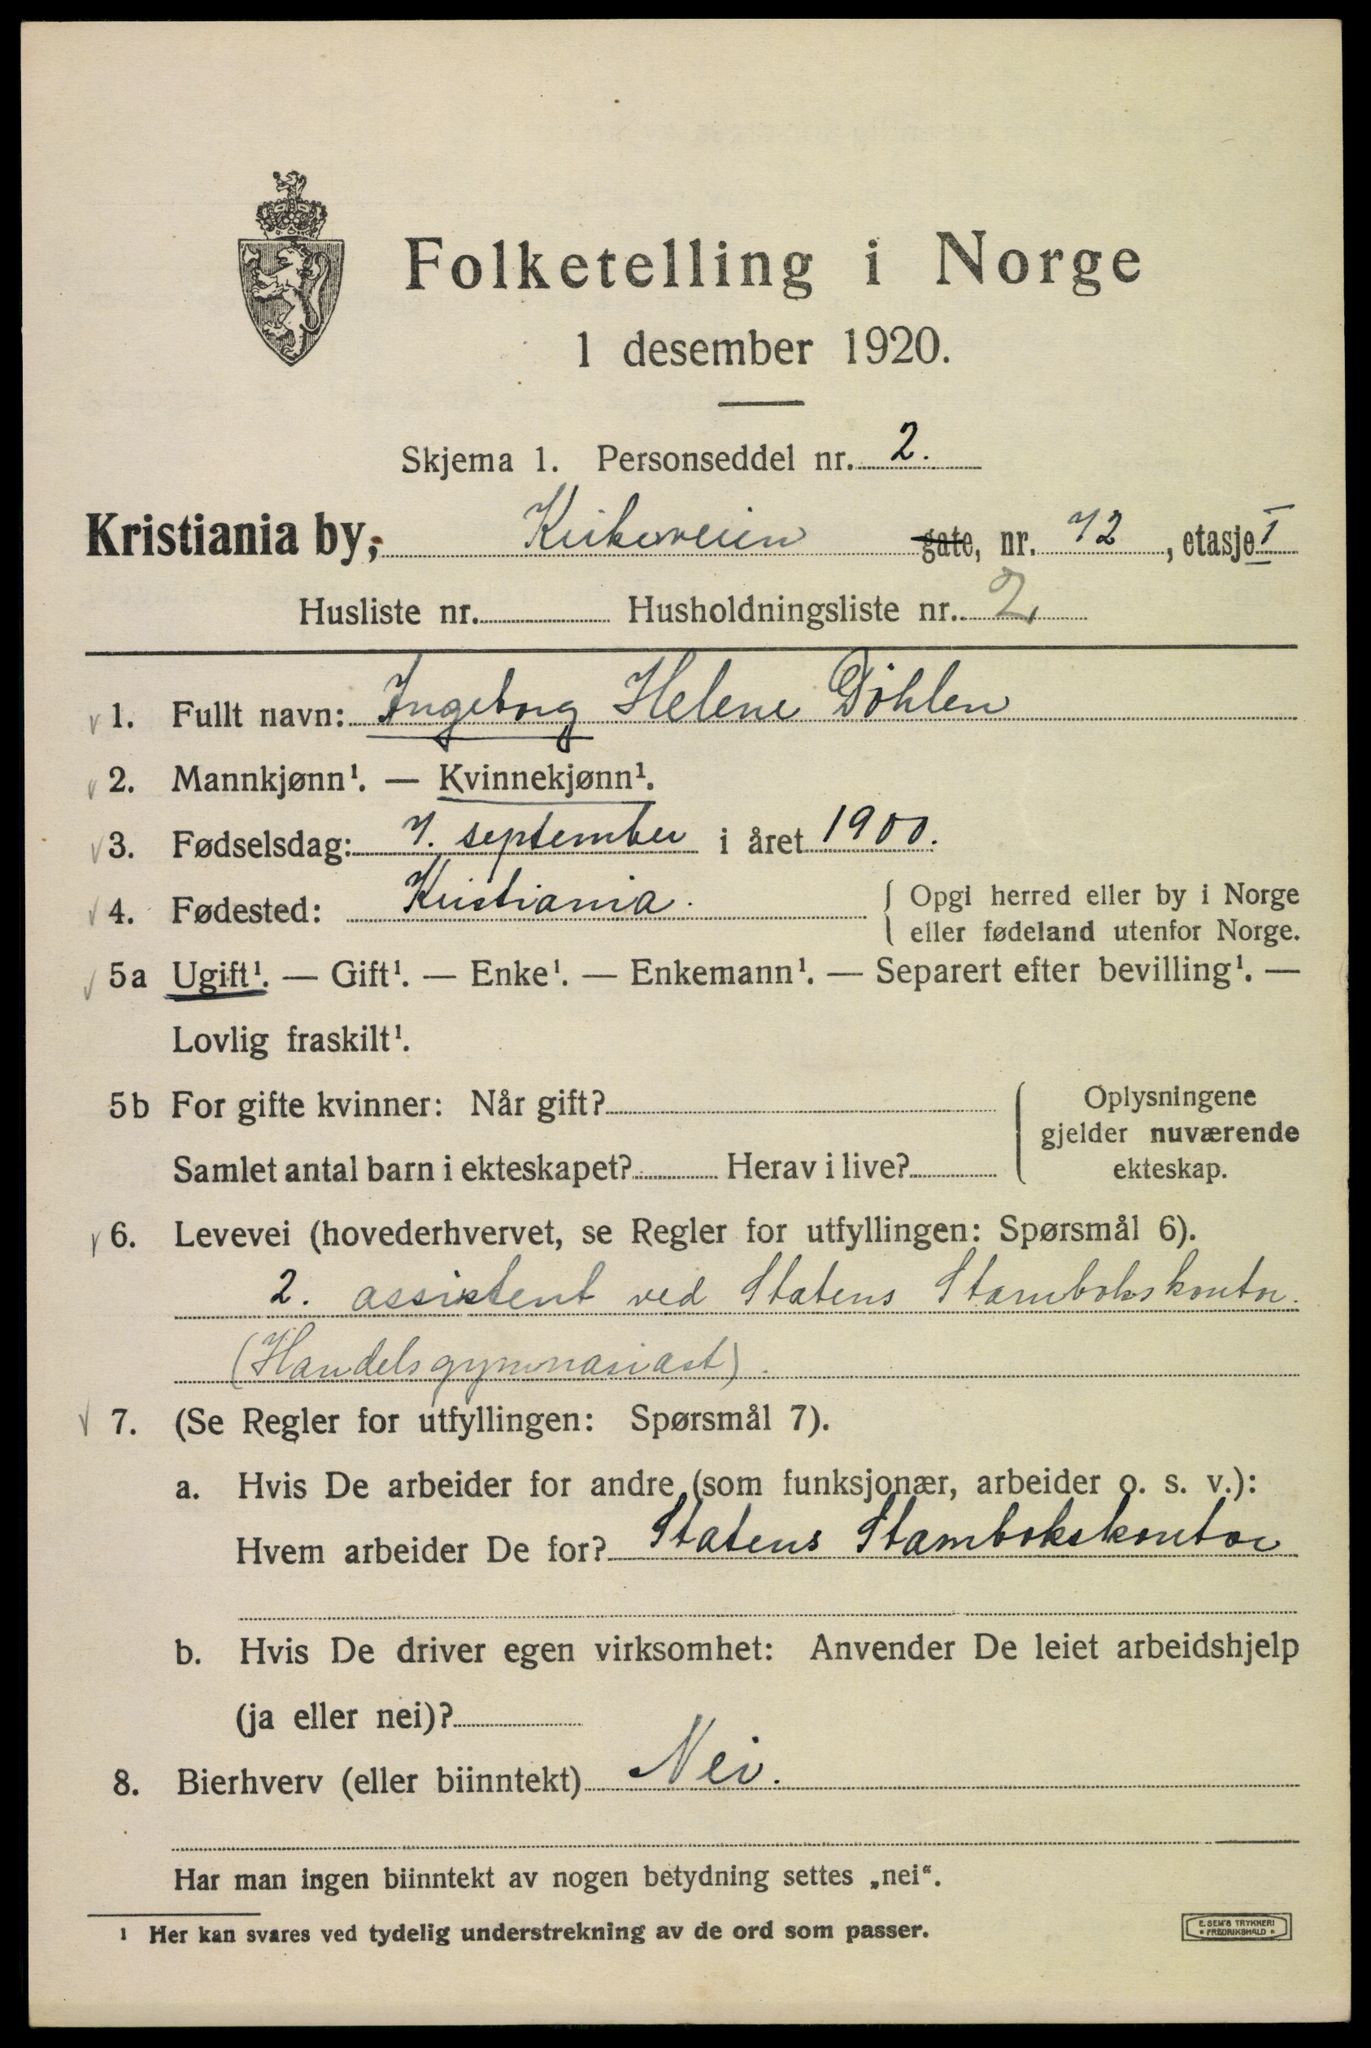 Folketelling i Norge
1 desember 1920.
Skjema 1. Personseddel nr. 2.
Kristiania by, Kirkeveien gate, nr. 72, etasje I
Husliste nr. Husholdningsliste nr. 2.
1. Fullt navn: Ingeborg Helene Døhlen
2. Mannkjønn¹. — Kvinnekjønn¹.
3. Fødselsdag: 7. september i året 1900.
4. Fødested: Kristiania. { Opgi herred eller by i Norge
eller fødeland utenfor Norge.
5a Ugift¹. — Gift¹. — Enke¹. — Enkemann¹. — Separert efter bevilling¹. —
Lovlig fraskilt¹.
5b For gifte kvinner: Når gift?
Samlet antal barn i ekteskapet? Herav i live?
{ Oplysningene
gjelder nuværende
ekteskap.
6. Levevei (hovederhvervet, se Regler for utfyllingen: Spørsmål 6).
2. assistent ved Statens Stambokskontor.
(Handelsgymnasiast).
7. (Se Regler for utfyllingen: Spørsmål 7).
a. Hvis De arbeider for andre (som funksjonær, arbeider o. s. v.):
Hvem arbeider De for? Statens Stambokskontor
b. Hvis De driver egen virksomhet: Anvender De leiet arbeidshjelp
(ja eller nei)?
8. Bierhverv (eller biinntekt) Nei.
Har man ingen biinntekt av nogen betydning settes „nei“.
¹ Her kan svares ved tydelig understrekning av de ord som passer.
E. SEM'S TRYKKERI
* FREDRIKSHALD *